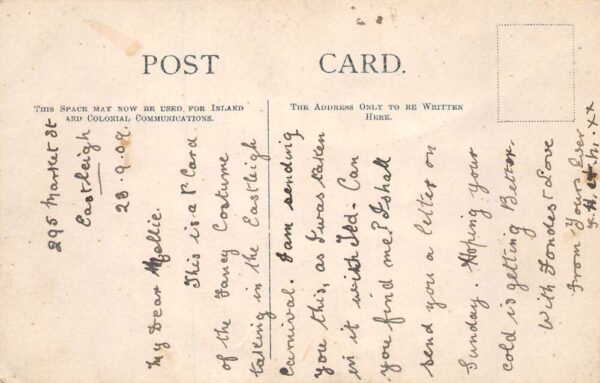 POST CARD.
THIS SPACE MAY NOW BE USED FOR INLAND
AND COLONIAL COMMUNICATIONS.
THE ADDRESS ONLY TO BE WRITTEN
HERE.
295 Market St
Eastleigh
23.9.09.
My Dear Nellie.
This is a P Card
of the Fancy Costume
taking in the Eastleigh
Carnival. I am sending
you this, as I was taken
in it with Ted. Can
you find me? I shall
send you a letter on
Sunday. Hoping your
cold is getting Better.
With Fondest Love
From Yours Ever
xx